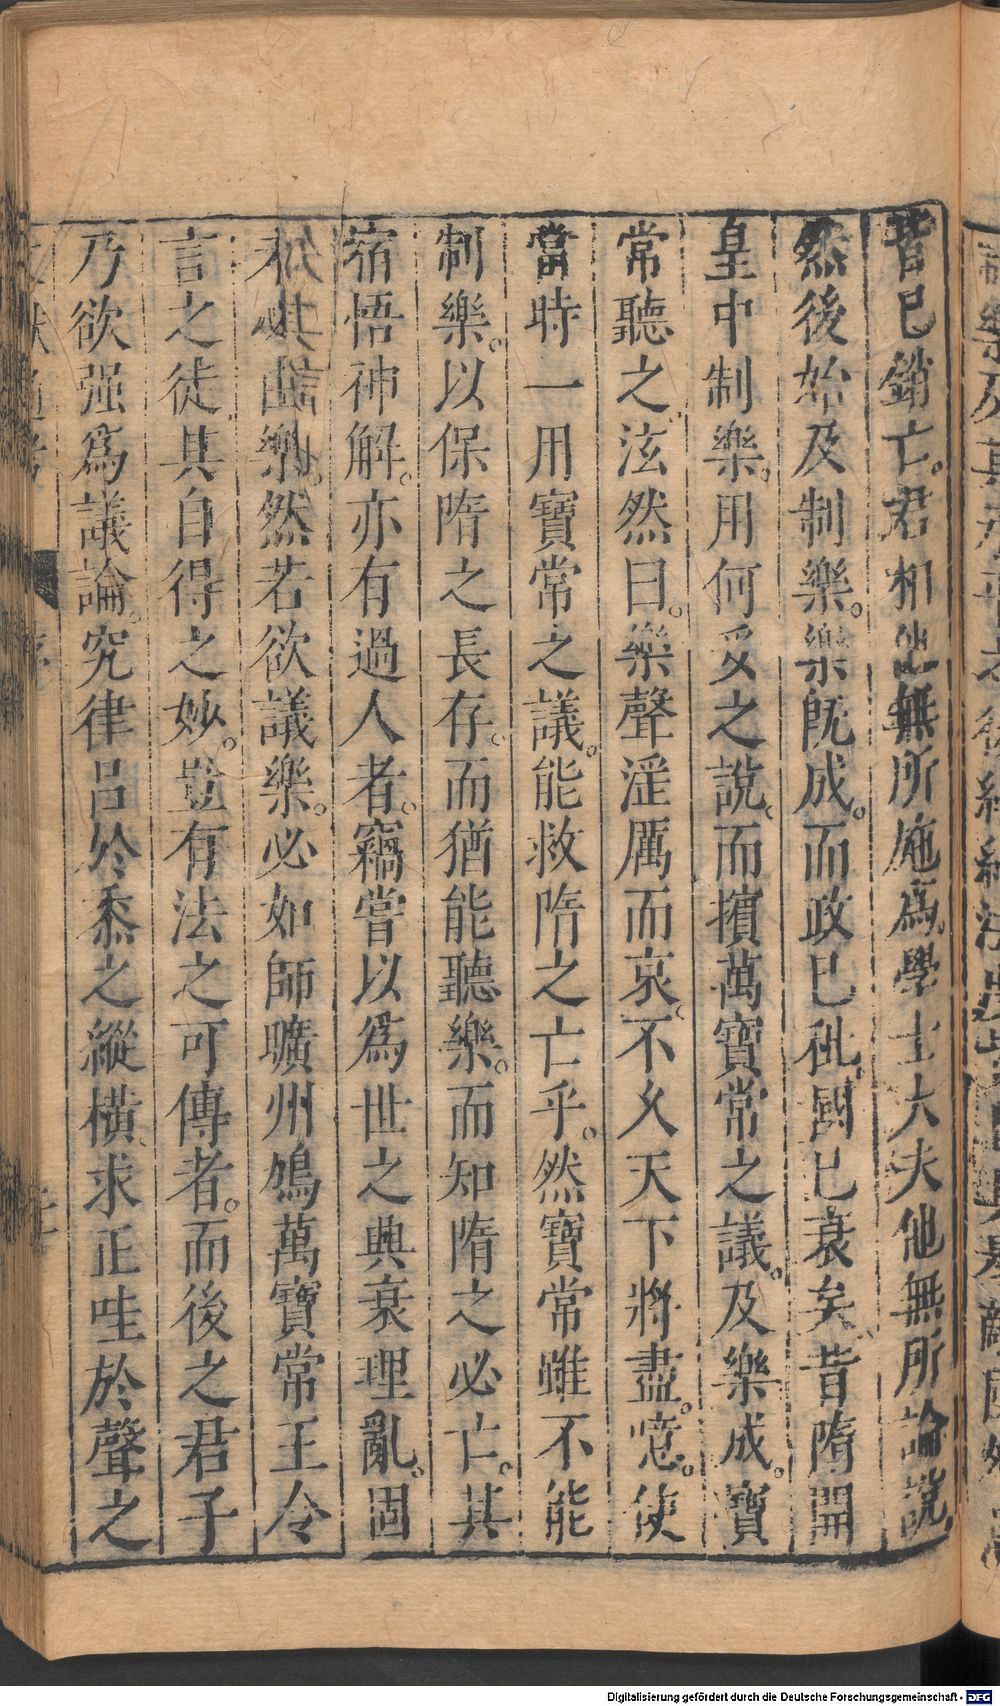 皆已銷亡。君相他無所施爲。學士大夫他無所論說
然後始及制樂。樂旣成。而政已秕國已衰矣。昔隋開
皇中制樂。用何妥之說。而擯萬寶常之議。及樂成。寶
常聽之。泫然曰。樂聲淫厲而哀。不久天下將盡。噫。使
當時一用寶常之議。能救隋之亡乎。然寶常雖不能
制樂。以保隋之長存。而猶能聽樂。而知隋之必亡。其
宿悟神解。亦有過人者。竊嘗以爲世之興衰理亂。固
未必由樂。然若欲議樂。必如師曠州鳩萬寶常王令
言之徒。其自得之妙。豈有法之可傳者。而後之君子
乃欲强爲議論。究律呂於黍之縱橫。求正哇於聲之
Digitalisierung gefördert durch die Deutsche Forschungsgemeinschaft - DFG